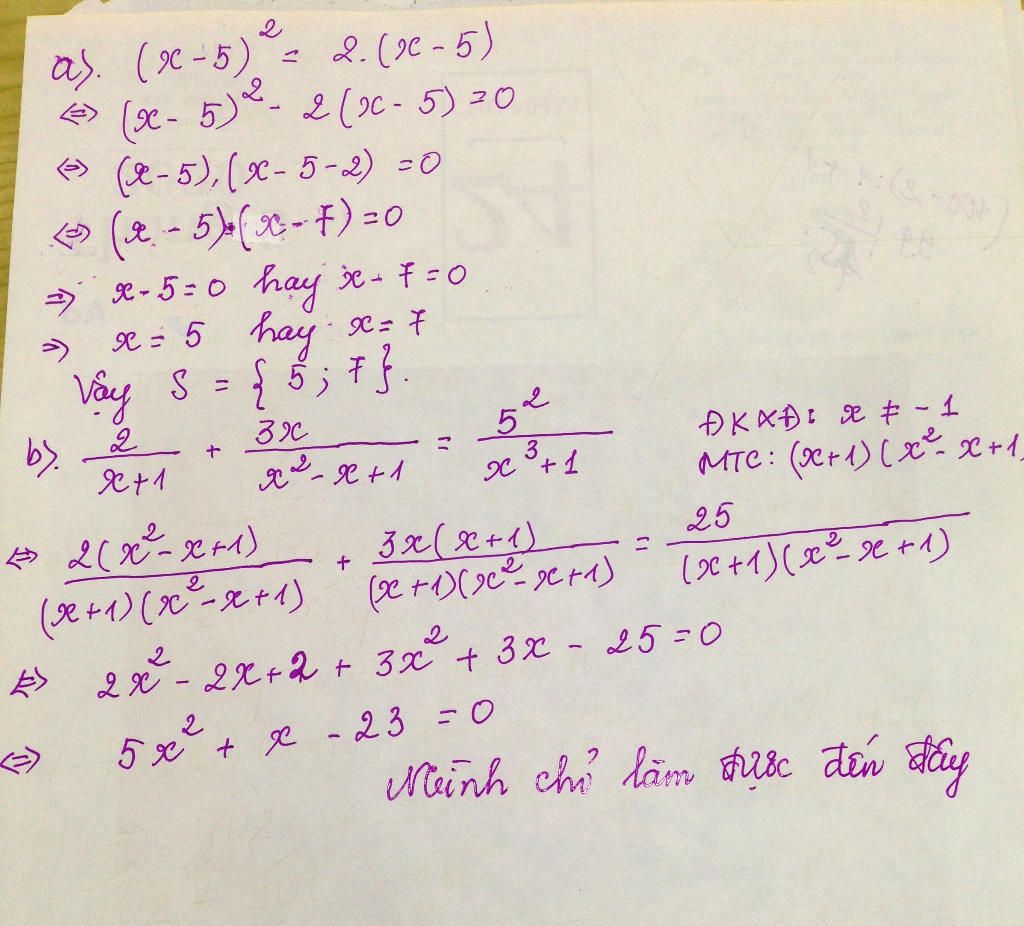 a). (x-5)² = 2.(x-5)
⇔ (x-5)² - 2(x-5) = 0
⇔ (x-5).(x-5-2) = 0
⇔ (x-5).(x-7) = 0
⇒ x-5=0 hay x-7=0
⇒ x = 5 hay x = 7
Vậy S = {5; 7}.
b). 2/(x+1) + 3x/(x²-x+1) = 5²/(x³+1)
ĐKXĐ: x ≠ -1
MTC: (x+1)(x²-x+1)
⇔ 2(x²-x+1)/((x+1)(x²-x+1)) + 3x(x+1)/((x+1)(x²-x+1)) = 25/((x+1)(x²-x+1))
⇔ 2x² - 2x + 2 + 3x² + 3x - 25 = 0
⇔ 5x² + x - 23 = 0
Mình chỉ làm được đến đây